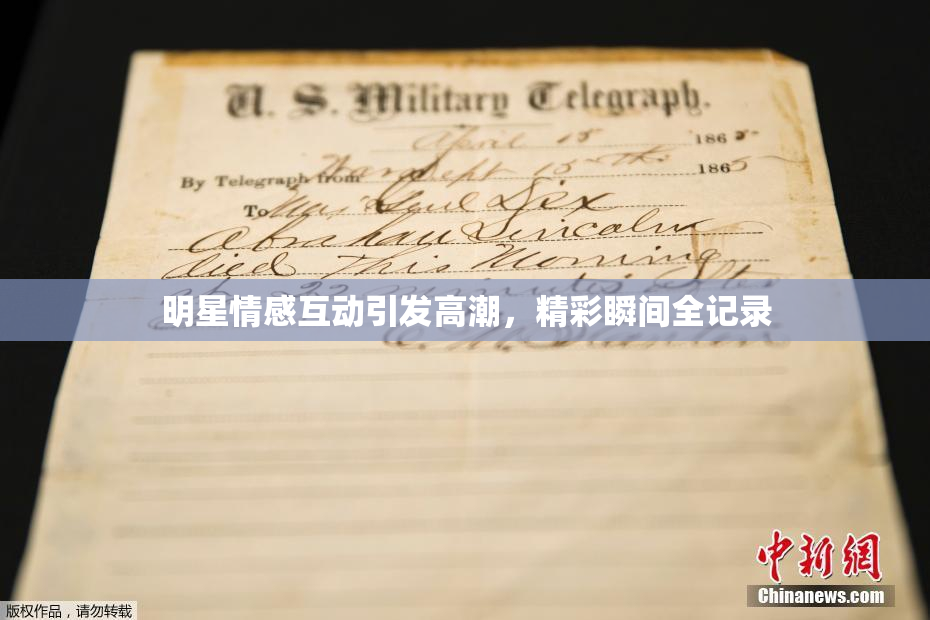 U. S. Military Telegraph.
April 15 1865
By Telegraph from War Dept 15th 1865
To Maj Genl Dix
Abraham Lincoln
died This Morning
at 22 minutes after
明星情感互动引发高潮，精彩瞬间全记录
E. M. Stanton
中新网
Chinanews.com
版权作品，请勿转载